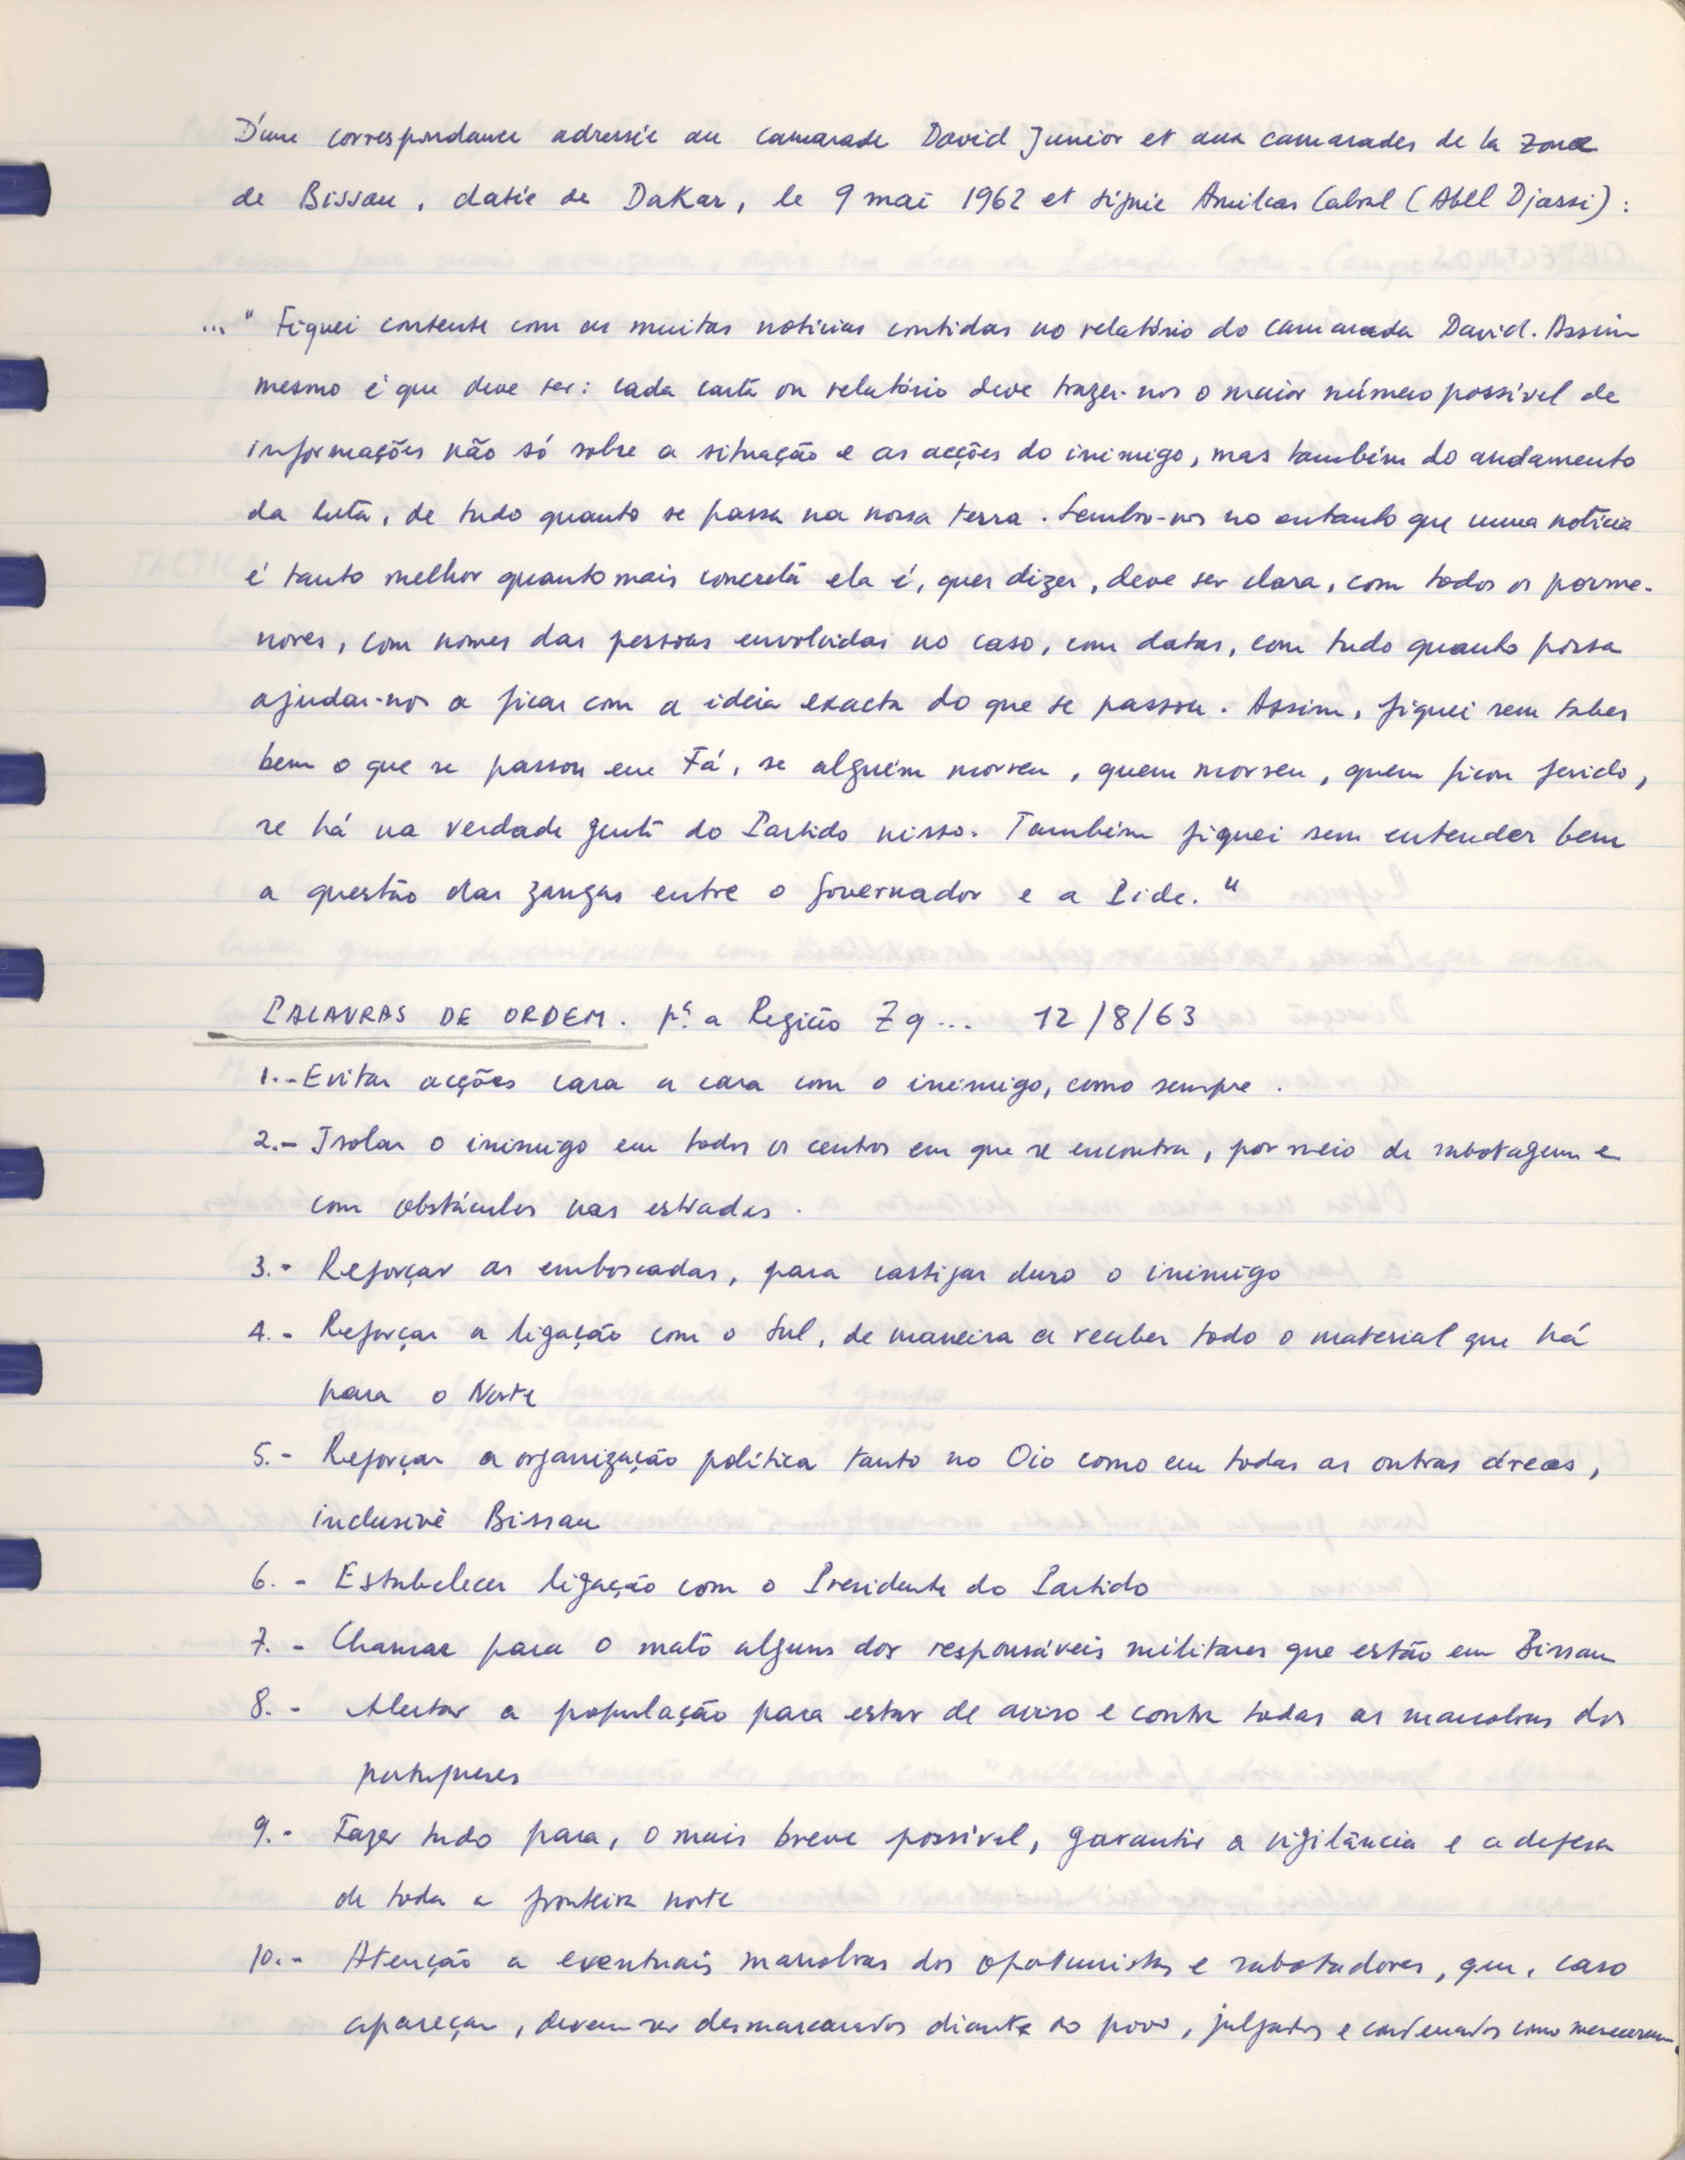 D'une correspondance adressée au camarade David Junior et aux camarades de la zone
de Bissau, datée de Dakar, le 9 mai 1962 et signée Amilcar Cabral (Abel Djassi) :
... " Fiquei contente com as muitas notícias contidas no relatório do camarada David. Assim
mesmo é que deve ser: cada carta ou relatório deve trazer-nos o maior número possível de
informações não só sobre a situação e as acções do inimigo, mas também do andamento
da luta, de tudo quanto se passa na nossa terra. Lembro-vos no entanto que uma notícia
é tanto melhor quanto mais concreta ela é, quer dizer, deve ser clara, com todos os porme-
nores, com nomes das pessoas envolvidas no caso, com datas, com tudo quanto possa
ajudar-nos a ficar com a ideia exacta do que se passou. Assim, fiquei sem saber
bem o que se passou em Fá, se alguém morreu, quem morreu, quem ficou ferido,
se há na verdade gente do Partido nisso. Também fiquei sem entender bem
a questão das zangas entre o Governador e a Pide. "
PALAVRAS DE ORDEM. pª a Região Z9... 12/8/63
1.- Evitar acções cara a cara com o inimigo, como sempre.
2.- Isolar o inimigo em todos os centros em que se encontra, por meio de sabotagem e
com obstáculos nas estradas.
3.- Reforçar as emboscadas, para castigar duro o inimigo
4.- Reforçar a ligação com o Sul, de maneira a receber todo o material que há
para o Norte
5.- Reforçar a organização política tanto no Oio como em todas as outras áreas,
inclusivé Bissau
6.- Estabelecer ligação com o Presidente do Partido
7.- Chamar para o mato alguns dos responsáveis militares que estão em Bissau
8.- Alertar a população para estar de aviso e contra todas as manobras dos
portugueses
9.- Fazer tudo para, o mais breve possível, garantir a vigilância e a defesa
de toda a fronteira norte
10.- Atenção a eventuais manobras dos oportunistas e sabotadores, que, caso
apareçam, devem ser desmascarados diante do povo, julgados e condenados como merecerem.